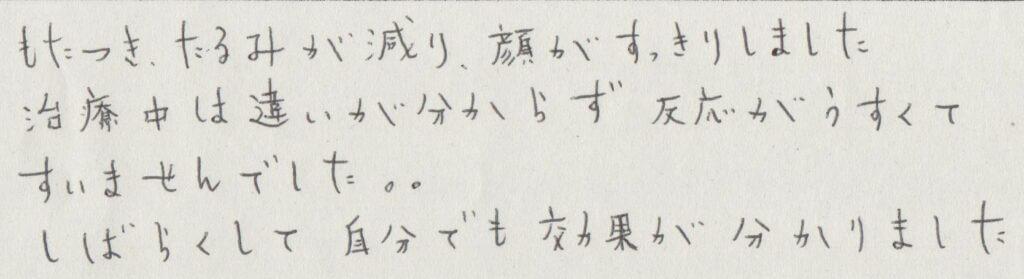 もたつき、たるみが減り、顔がすっきりしました
治療中は違いが分からず 反応がうすくて
すいませんでした。。
しばらくして 自分でも 効果が分かりました